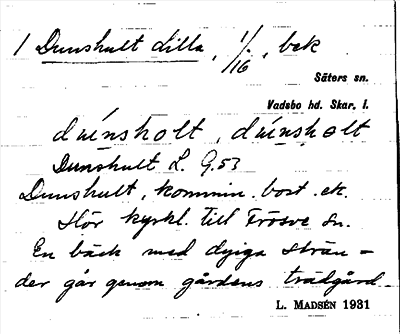 1 Dunshult Lilla, 1/16, bek
Säters sn.
Vadsbo hd. Skar. l.
Dunshult L. G.53
Dunshult, kommin. bost. ek.
Hör kyrkl. till Frösve sn.
En bäck med dyiga strän=
der går genom gårdens trädgård
L. MADSÉN 1931